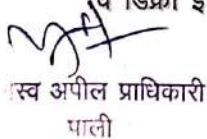 डिक्री
स्व अपील प्राधिकारी
पाली